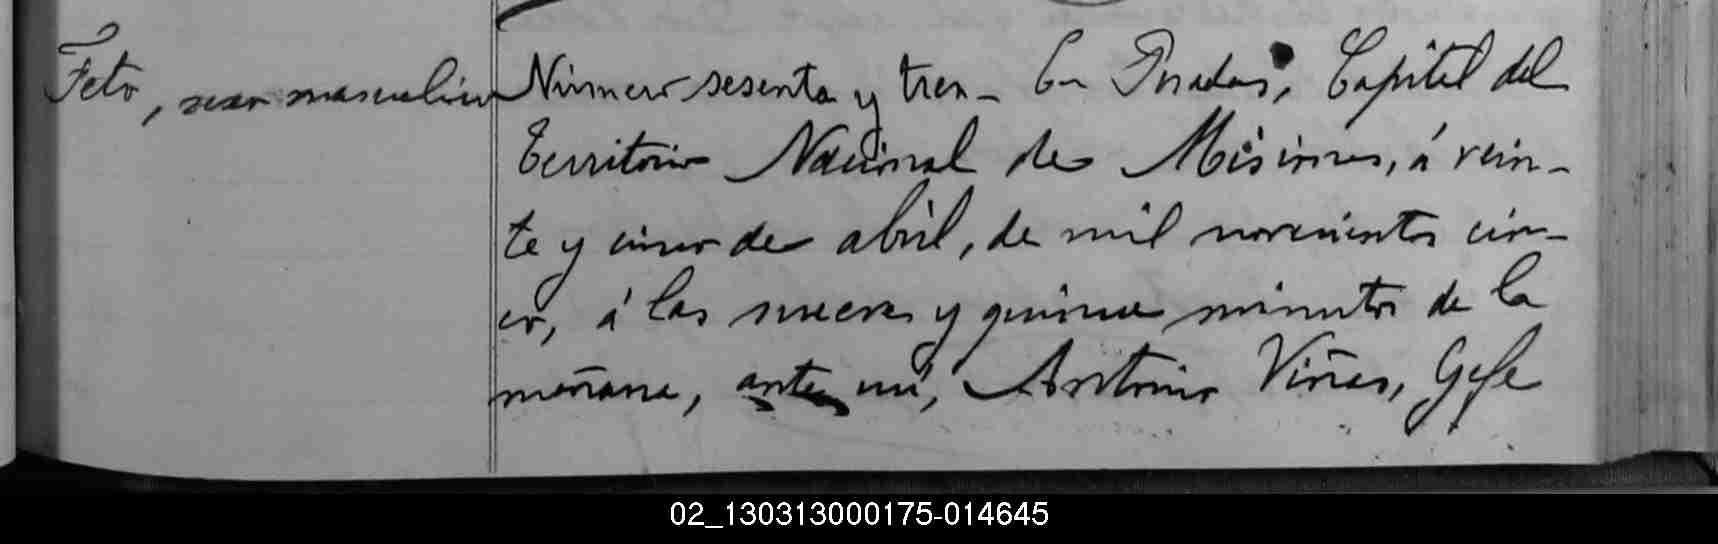 Feto, sexo masculino
Número sesenta y tres_ En Posadas, Capital del
Territorio Nacional de Misiones, á vein-
te y cinco de abril, de mil novecientos cin-
co, á las nueve y quince minutos de la
mañana, ante mi, Antonio Viñas, Gefe
02_130313000175-014645